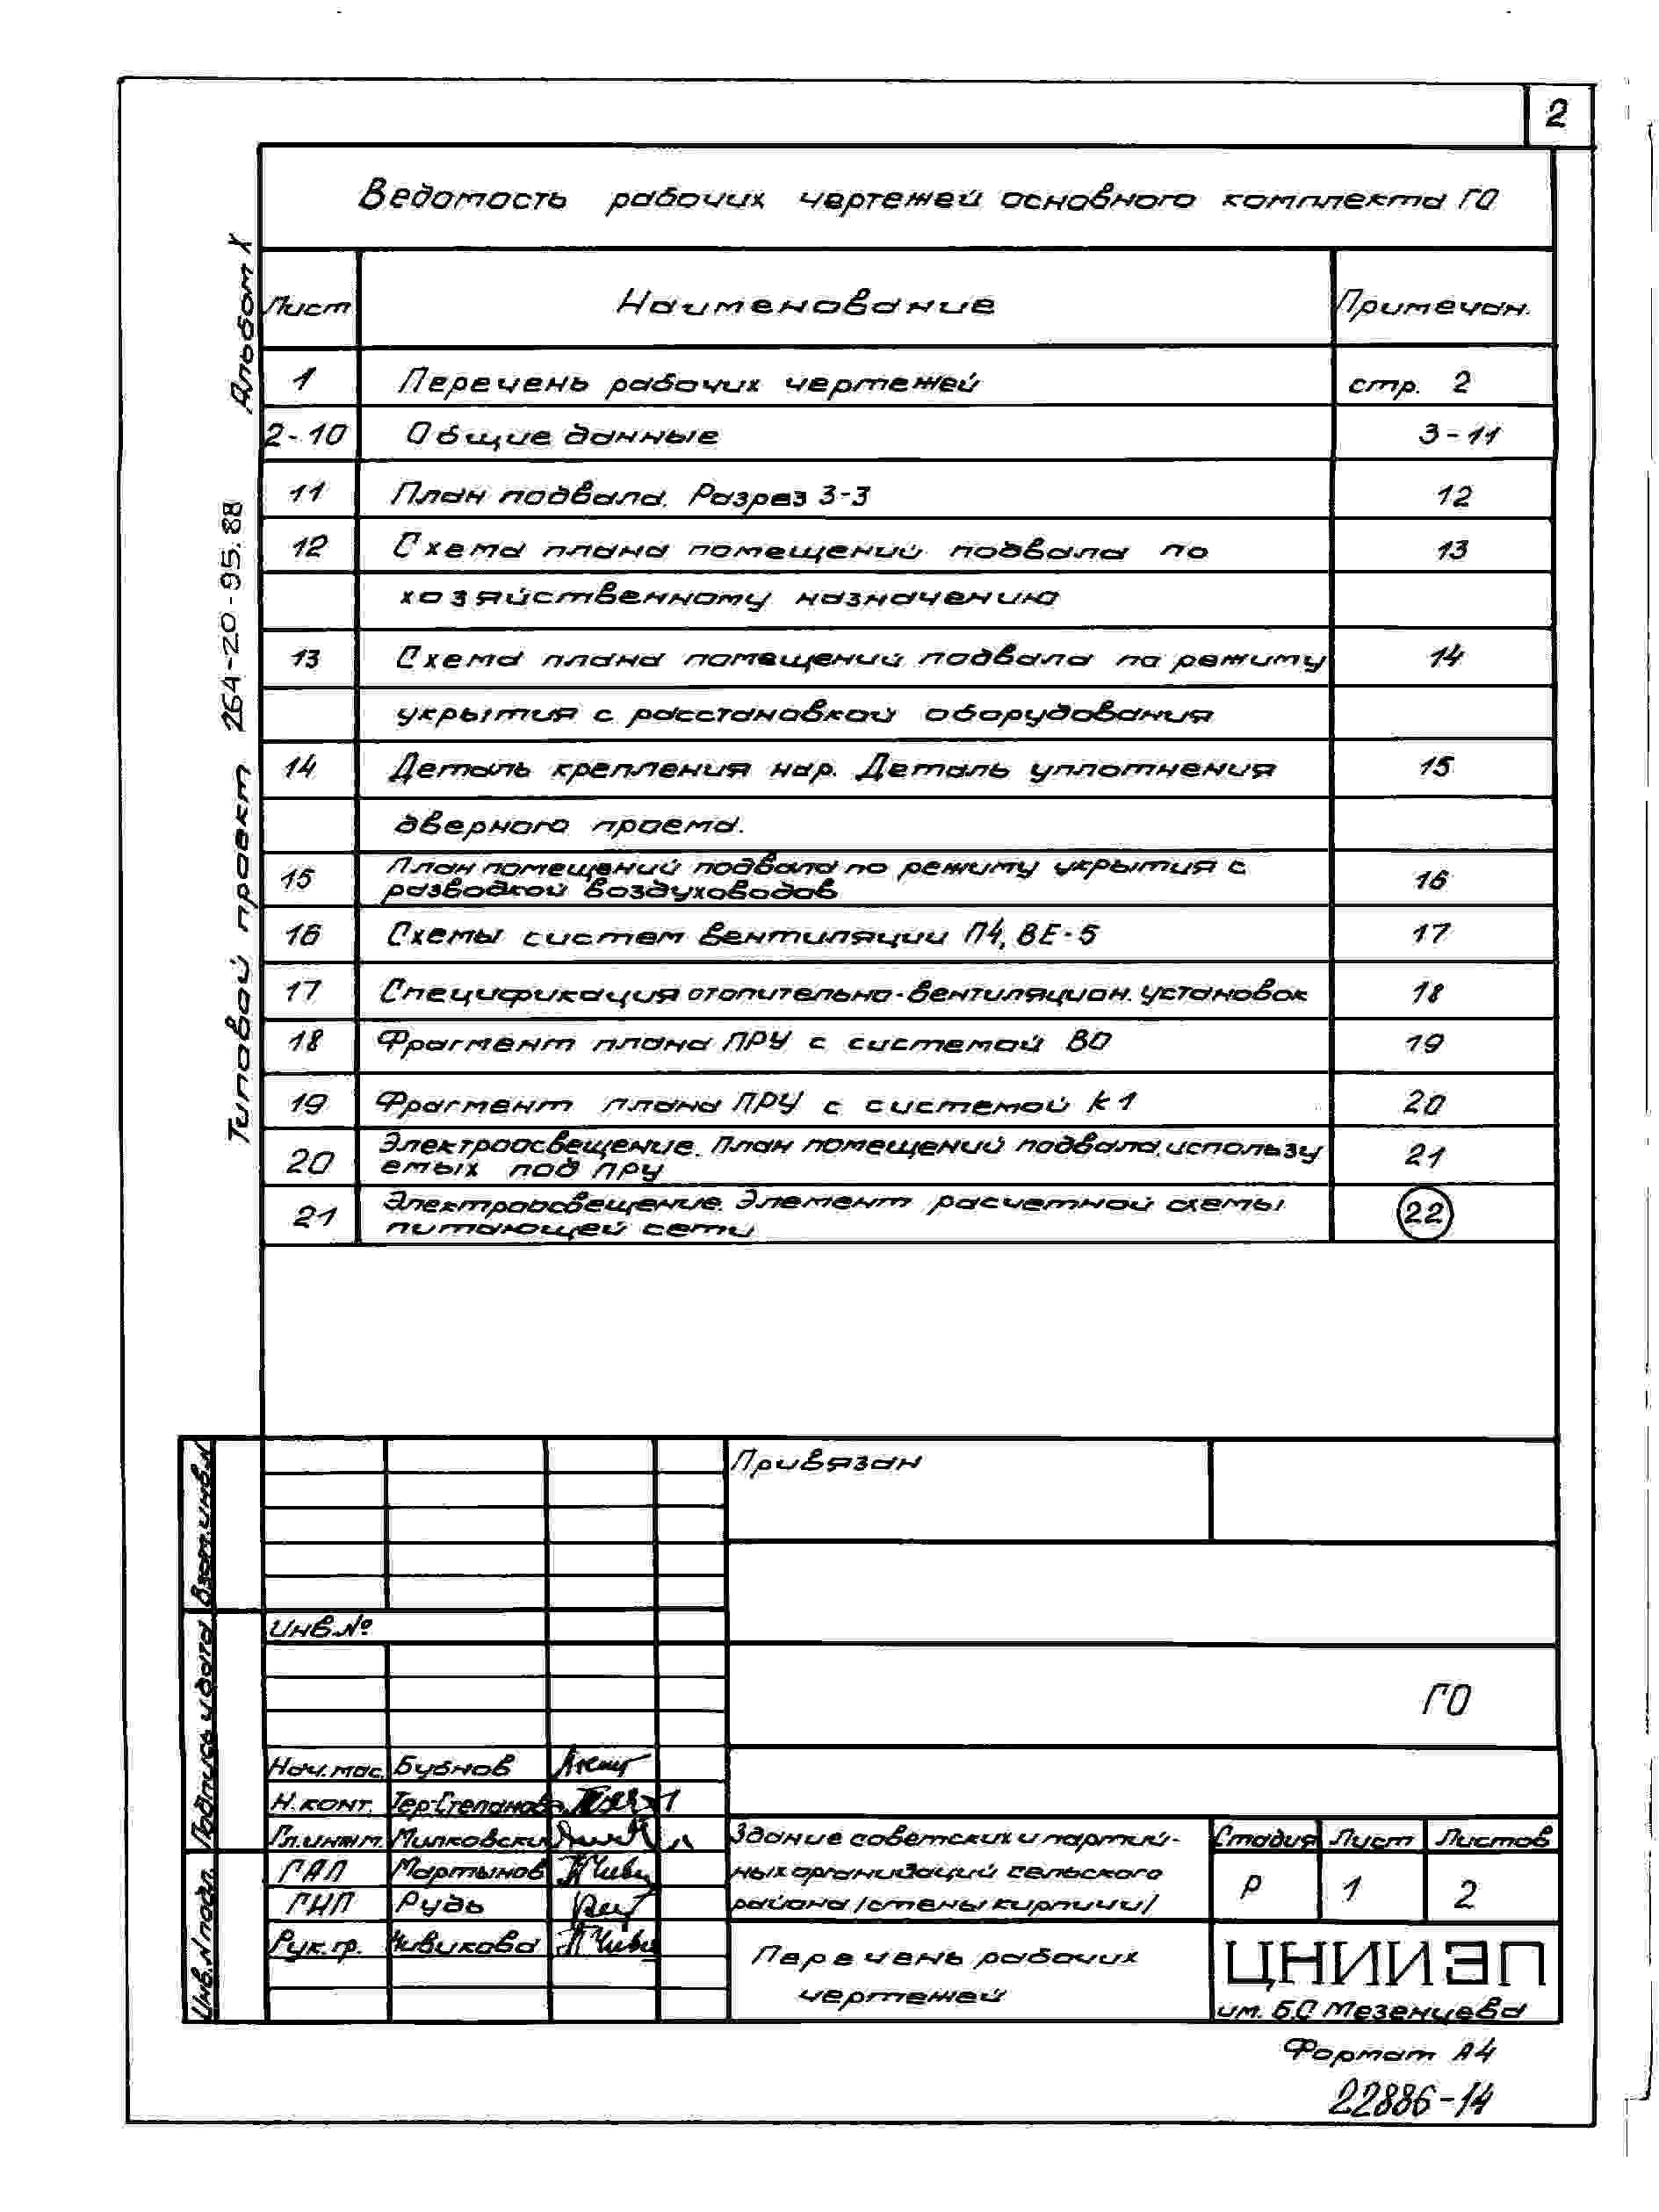 2
Ведомость рабочих чертежей основного комплекта ГО
Лист Наименование Примечан.
1 Перечень рабочих чертежей стр. 2
2-10 Общие данные 3-11
11 План подвала. Разрез 3-3 12
12 Схема плана помещений подвала по 13
хозяйственному назначению
13 Схема плана помещений подвала по режиму 14
укрытия с расстановкой оборудования
14 Деталь крепления нар. Деталь уплотнения 15
дверного проема.
15 План помещений подвала по режиму укрытия с 16
разводкой воздуховодов
16 Схемы систем вентиляции П4, ВЕ-5 17
17 Спецификация отопительно-вентиляцион. установок 18
18 Фрагмент плана ПРУ с системой ВО 19
19 Фрагмент плана ПРУ с системой К1 20
20 Электроосвещение. План помещений подвала, использу 21
емых под ПРУ
21 Электроосвещение. Элемент расчетной схемы 22
питающей сети
Альбом X
Типовой проект 264-20-95.88
Привязан
Взам.инв.N
Подпись и дата
Инв.N подл.
Инв.№
ГО
Нач.мас. Бубнов
Н.конт. Тер-Степанова
Гл.инж.м. Милковски
ГАП Мартынов
ГИП Рудь
Рук.гр. Чивикова
Здание советских и партий-
ных организаций сельского
района /стены кирпичи/
Стадия Лист Листов
Р 1 2
Перечень рабочих
чертежей
ЦНИИЭП
им. Б.С Мезенцева
Формат А4
22886-14